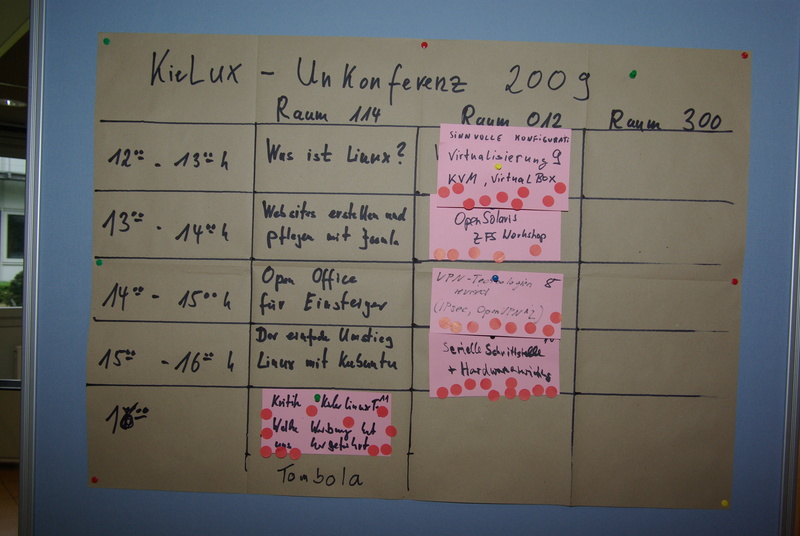 KieLux - Unkonferenz 2009
Raum 114 Raum 012 Raum 300
12⁰⁰ - 13⁰⁰ h
Was ist Linux?
SINNVOLLE KONFIGURATI
Virtualisierung 9
KVM, VirtualBox
13⁰⁰ - 14⁰⁰ h
Websites erstellen und
pflegen mit Joomla
OpenSolaris
ZFS Workshop
14⁰⁰ - 15⁰⁰ h
Open Office
für Einsteiger
VPN-Technologien 8
(IPsec, OpenVPN
15⁰⁰ - 16⁰⁰ h
Der einfache Umstieg
Linux mit Kubuntu
Serielle Schnittstelle
+ Hardware
16⁰⁰
Kritik Kieler Linux T
Welche Werbung hat
uns hergeführt
Tombola